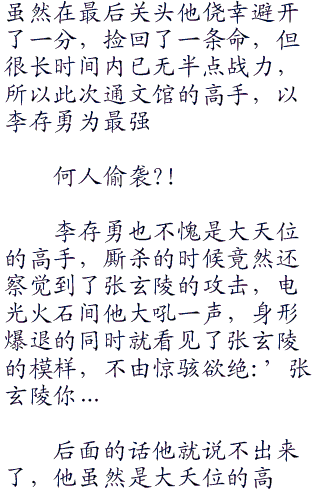 虽然在最后关头他侥幸避开
了一分，捡回了一条命，但
很长时间内已无半点战力，
所以此次通文馆的高手，以
李存勇为最强
何人偷袭?!
李存勇也不愧是大天位
的高手，厮杀的时候竟然还
察觉到了张玄陵的攻击，电
光火石间他大吼一声，身形
爆退的同时就看见了张玄陵
的模样，不由惊骇欲绝:’张
玄陵你...
后面的话他就说不出来
了，他虽然是大天位的高